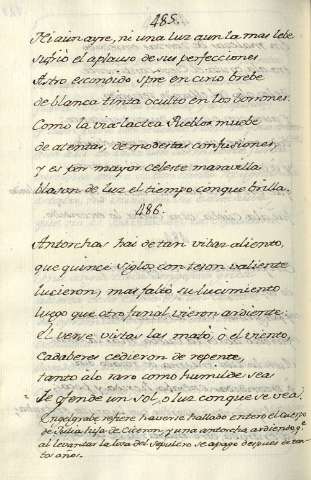 485.
Ni aun ayre, ni una luz aun la mas lebe
sufrio el aplauso de sus perfecciones
Astro escondido Spre en cino brebe
de blanca tinta oculto en los borrones.
Como la via lactea Pueblos muebe
de atentas, de modestas confusiones,
y es por mayor celeste maravilla
blason de luz el tiempo conque brilla.
486.
Antorchas hai de tan vibaz aliento,
que quince siglos con teson valiente
lucieron; mas faltó su lucimiento
luego que otro fanal vieron ardiente:
el verse vistas las mató, ó el viento,
Cadaberes cedieron de repente,
tanto álo raro como humilde sea
le ofende un sol, o luz conque se vea.
Engelgrabe refiere haverse hallado entero el Cuerpo
de Tulia hija de Ciceron, y una antorcha ardiendo qe
al levantar la losa del sepulcro se apagó despues de tan-
tos años.